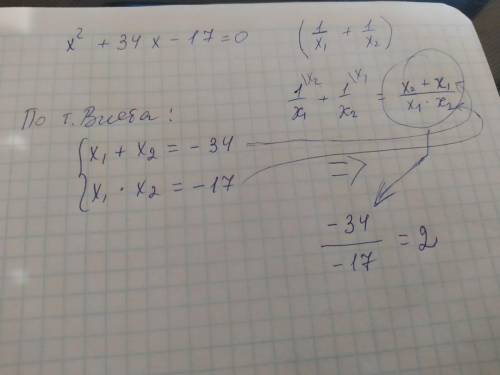 x² + 34x - 17 = 0 (1/x₁ + 1/x₂)
1\x₂/x₁ + 1\x₁/x₂ = (x₂ + x₁)/(x₁ · x₂)
По т. Виета:
{ x₁ + x₂ = -34
x₁ · x₂ = -17
=>
-34/-17 = 2